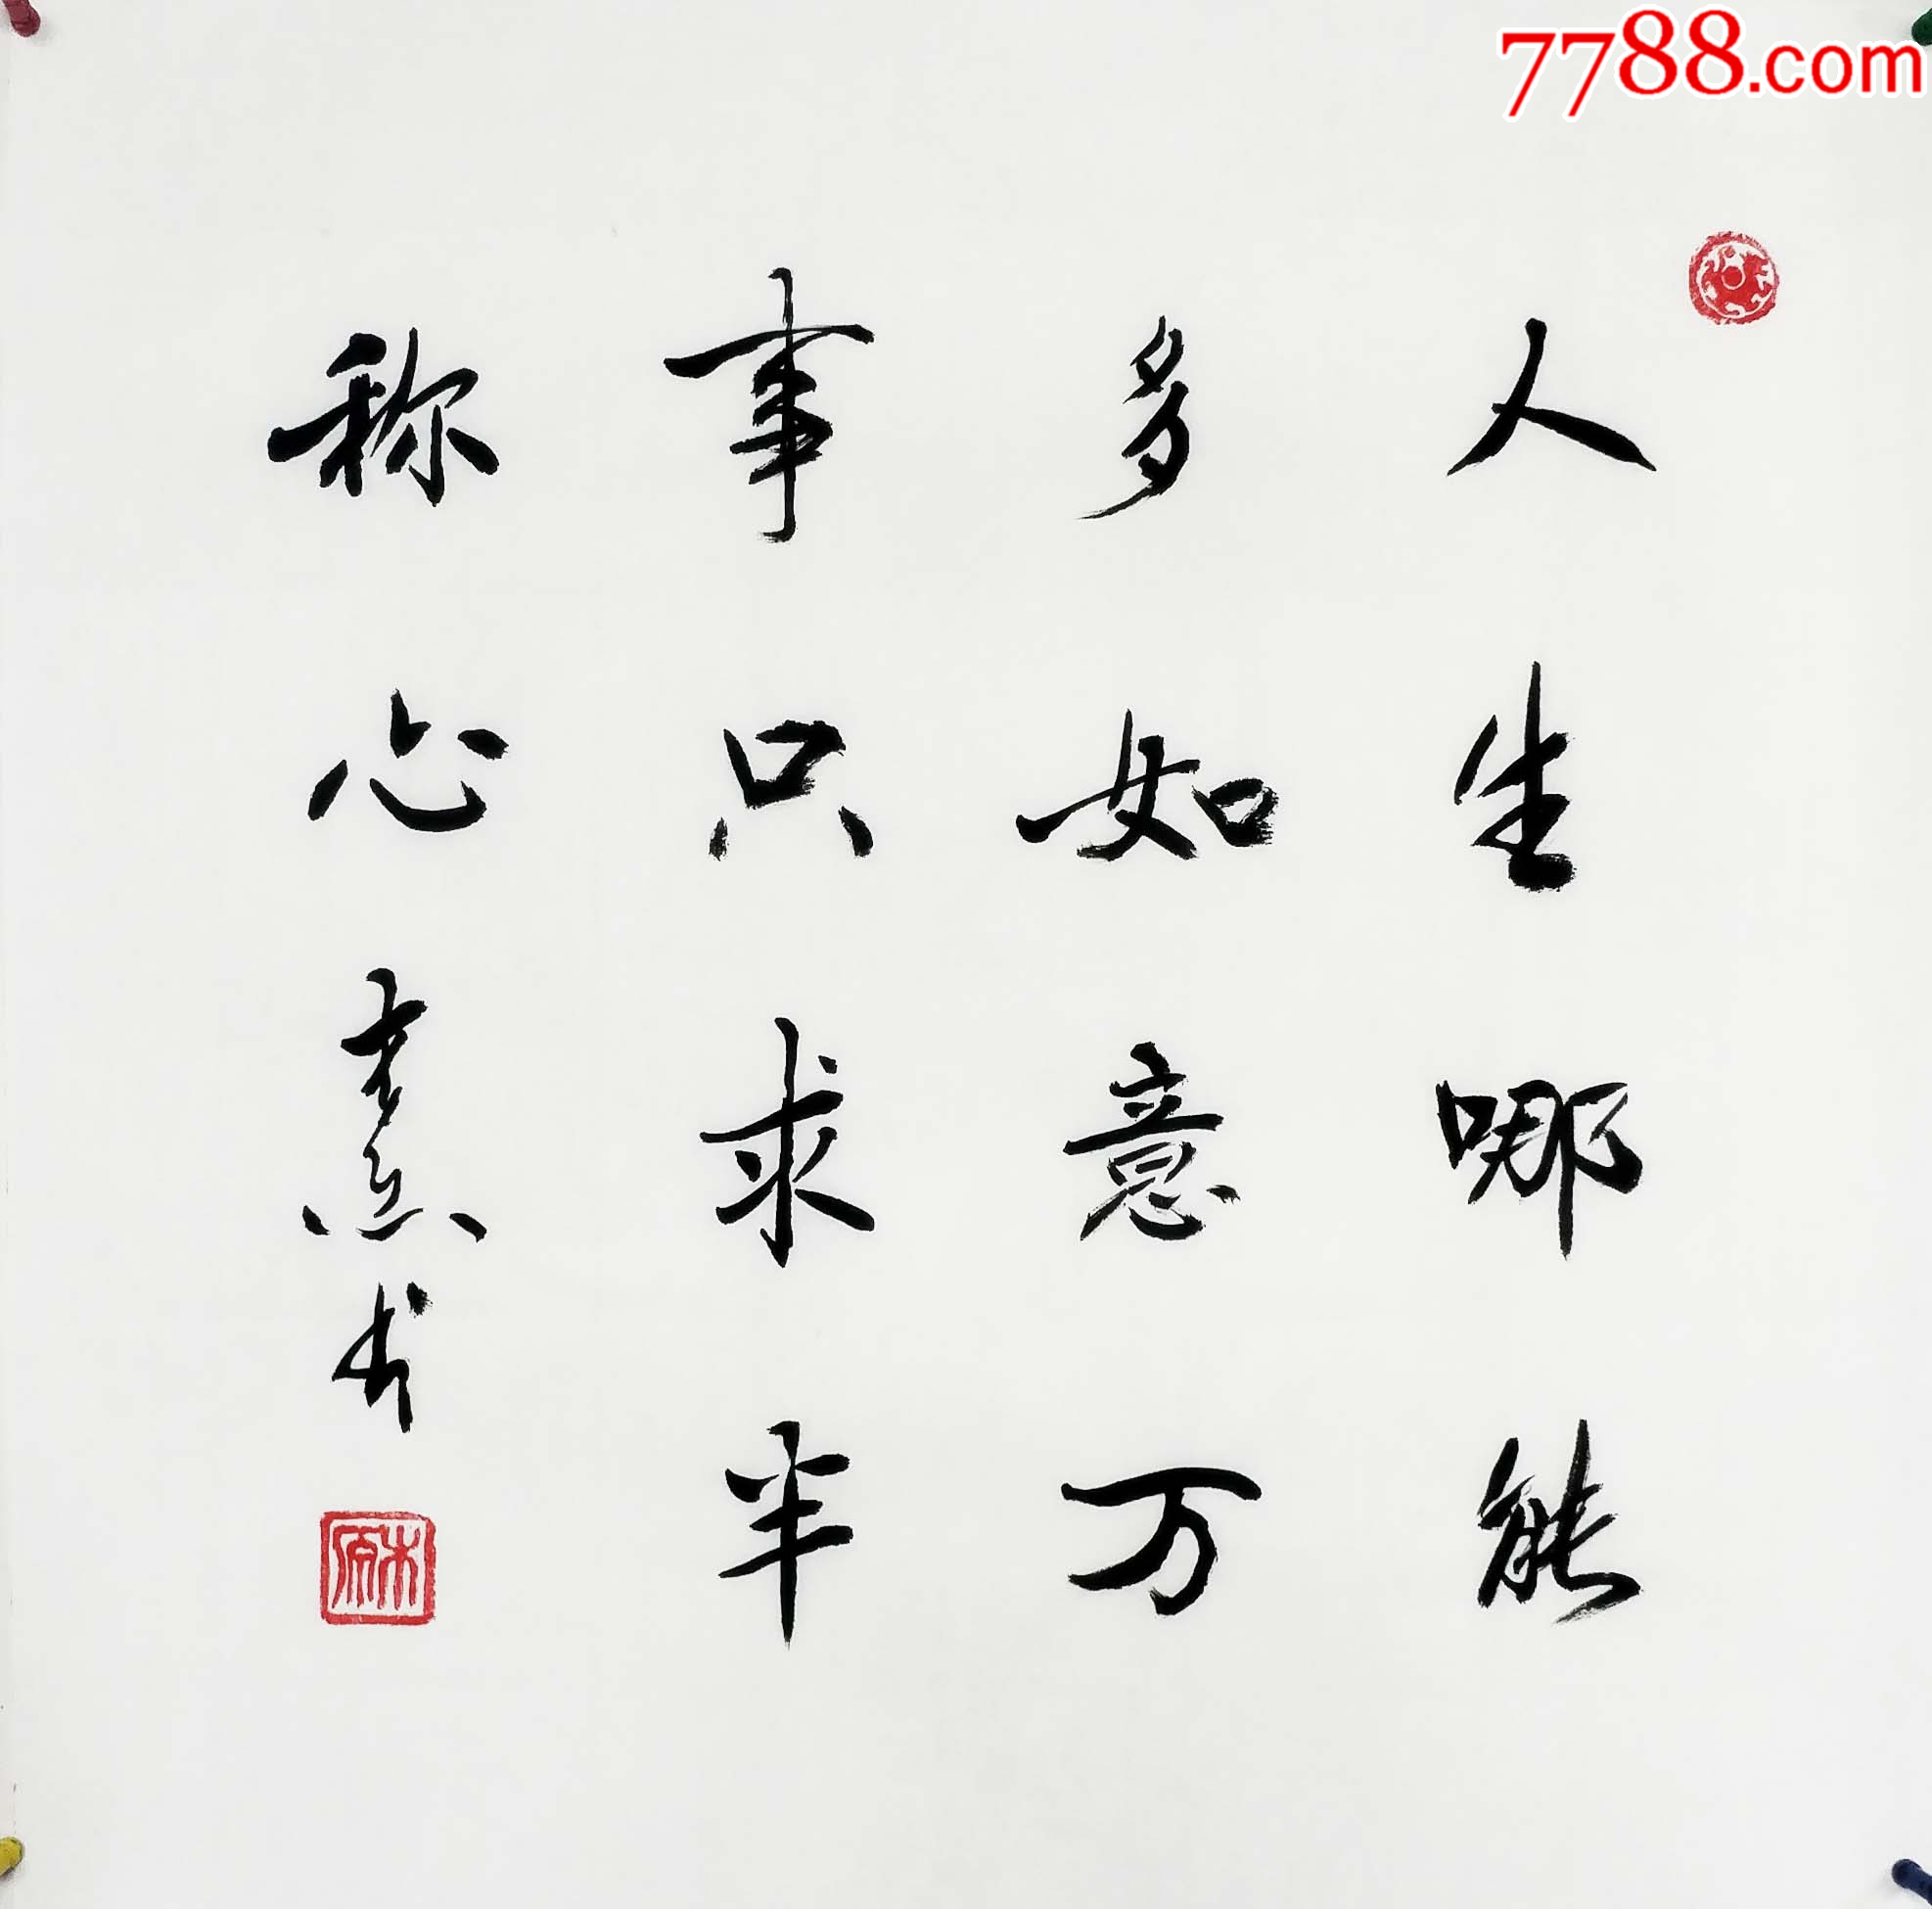 7788.com
人生哪能
多如意万
事只求半
称心
书